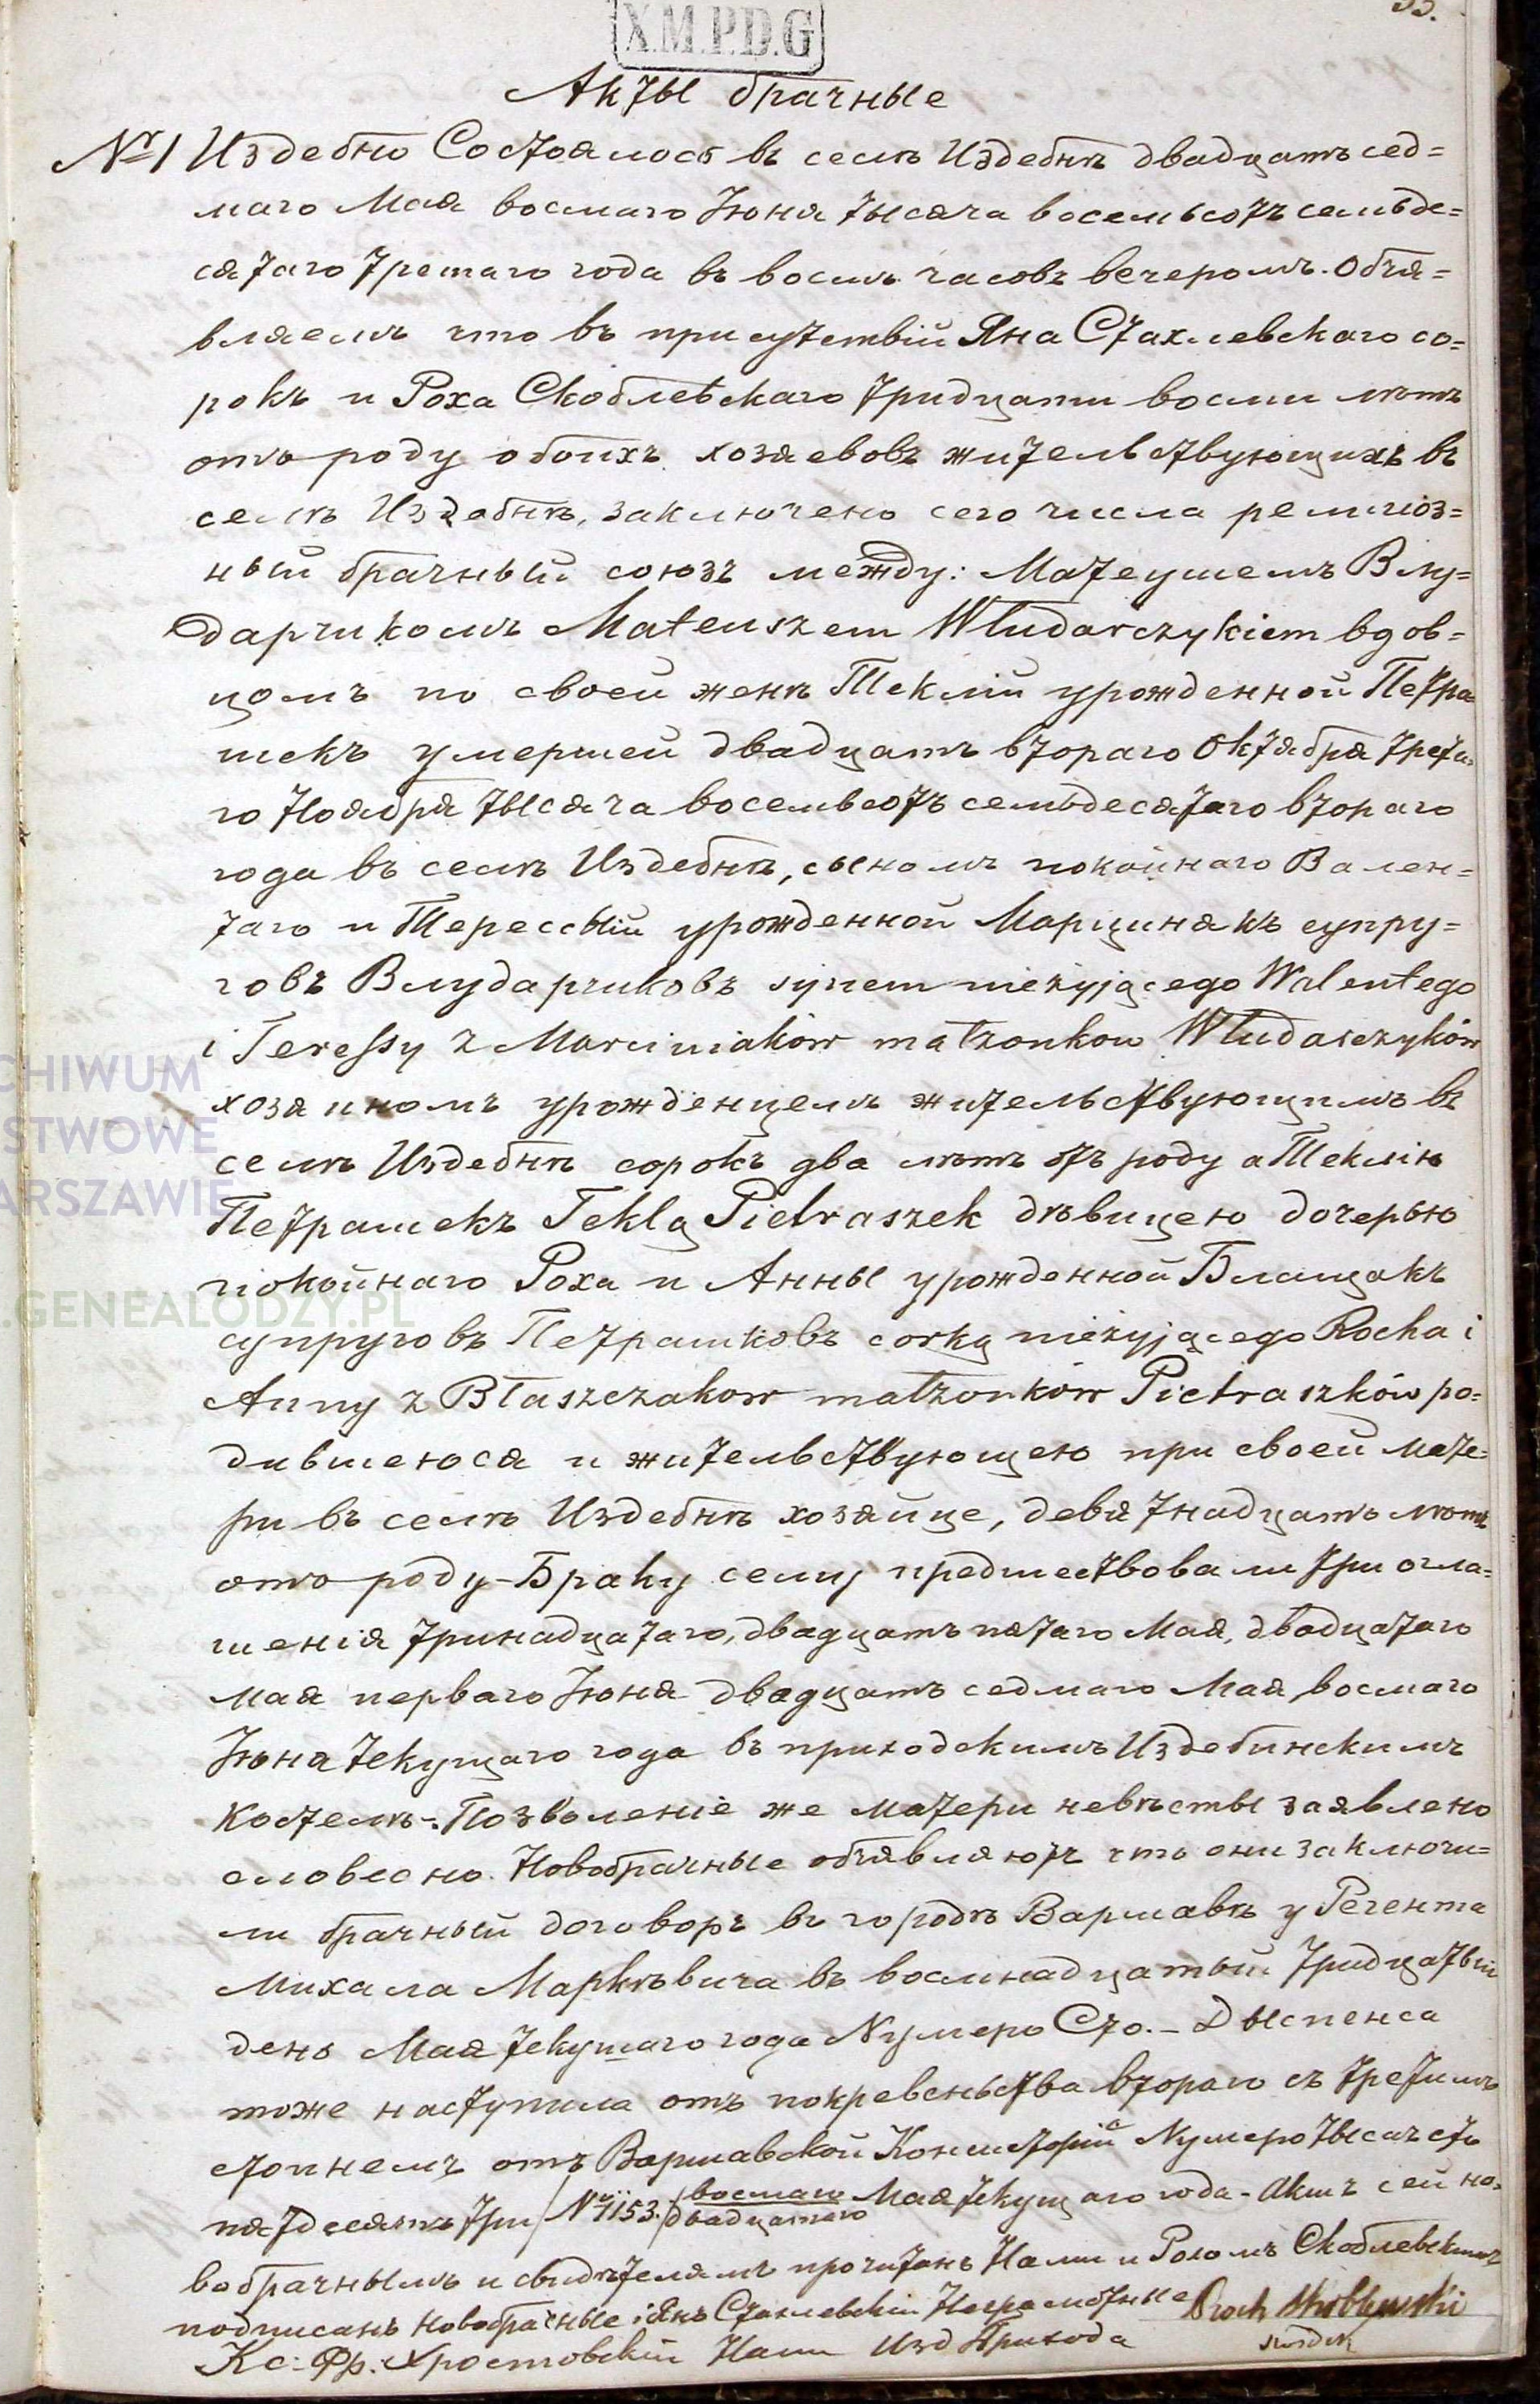 33.
X.M.P.D.G
Акты брачные
№ 1 Издебно Состоялось въ селѣ Издебнѣ двадцать сед=
маго Мая восмаго Іюня тысяча восемьсотъ семьде=
сятаго третаго года въ восмь часовъ вечеромъ. Объя=
вляемъ что въ присутствіи Яна Стахлевскаго со=
рокъ и Роха Скоблевскаго тридцати восми лѣтъ
отъ роду обоихъ хозяевовъ жительствующихъ въ
селѣ Издебнѣ, заключено сего числа религіоз=
ный брачный союзъ между: Матеушемъ Влу=
дарчикомъ Mateuszem Włudarczykiem вдов=
цомъ по своей женѣ Теклій урожденной Петра
шекъ умершей двадцать втораго Октября треть=
го Ноября тысяча восемьсотъ семьдесятаго втораго
года въ селѣ Издебнѣ, сыномъ покойнаго Вален=
таго и Терессый урожденной Марцинякъ супру=
говъ Влударчиковъ synem nieżyjącego Walentego
i Teressy z Marciniaków małżonkow Włudarczyków
хозяиномъ урожденцемъ жительствующимъ въ
селѣ Издебнѣ сорокъ два лѣтъ отъ роду а Теклію
Петрашекъ Teklą Pietraszek дѣвицею дочерью
покойнаго Роха и Анны урожденной Блащакъ
супруговъ Петрашковъ corką nieżyjącego Rocha i
Anny z Błaszczakow małżonków Pietraszków ро=
дившеюся и жительствующею при своей мате=
ри въ селѣ Издебнѣ хозяйце, девятнадцать лѣтъ
отъ роду - Браку сему предшествовали три огла=
шенія тринадцатаго, двадцать пятаго Мая, двадцатаго
Мая перваго Іюня двадцать седмаго Мая восмаго
Іюна текущаго года въ приходскимъ Издебинскимъ
Костелѣ. - Позволеніе же матери невѣсты заявлено
словесно. Новобрачные объявляютъ что они заключи=
ли брачный договоръ въ городѣ Варшавѣ у Регента
Михала Маркѣвича въ восмнадцатый тридцатый
день Мая текущаго года Нумеро Сто. - Дыспенса
тоже наступила отъ покревеньства втораго съ третимъ
стопнемъ отъ Варшавской Консисторіи Нумеро тысячъ сто
пятдесятъ три / № 1153. / восмаго Мая текущаго года - Актъ сей но=
двадцатаго
вобрачнымъ и свидѣтелямъ прочитанъ Нами и Рохомъ Скоблевскимъ
подписанъ новобрачные і Янъ Стахлевскій Неграмотные Roch Skoblewski
Кс: Фр: Хростовскій Нами Изд Прихода świadek
ARCHIWUM
PAŃSTWOWE
WARSZAWIE
.GENEALODZY.PL